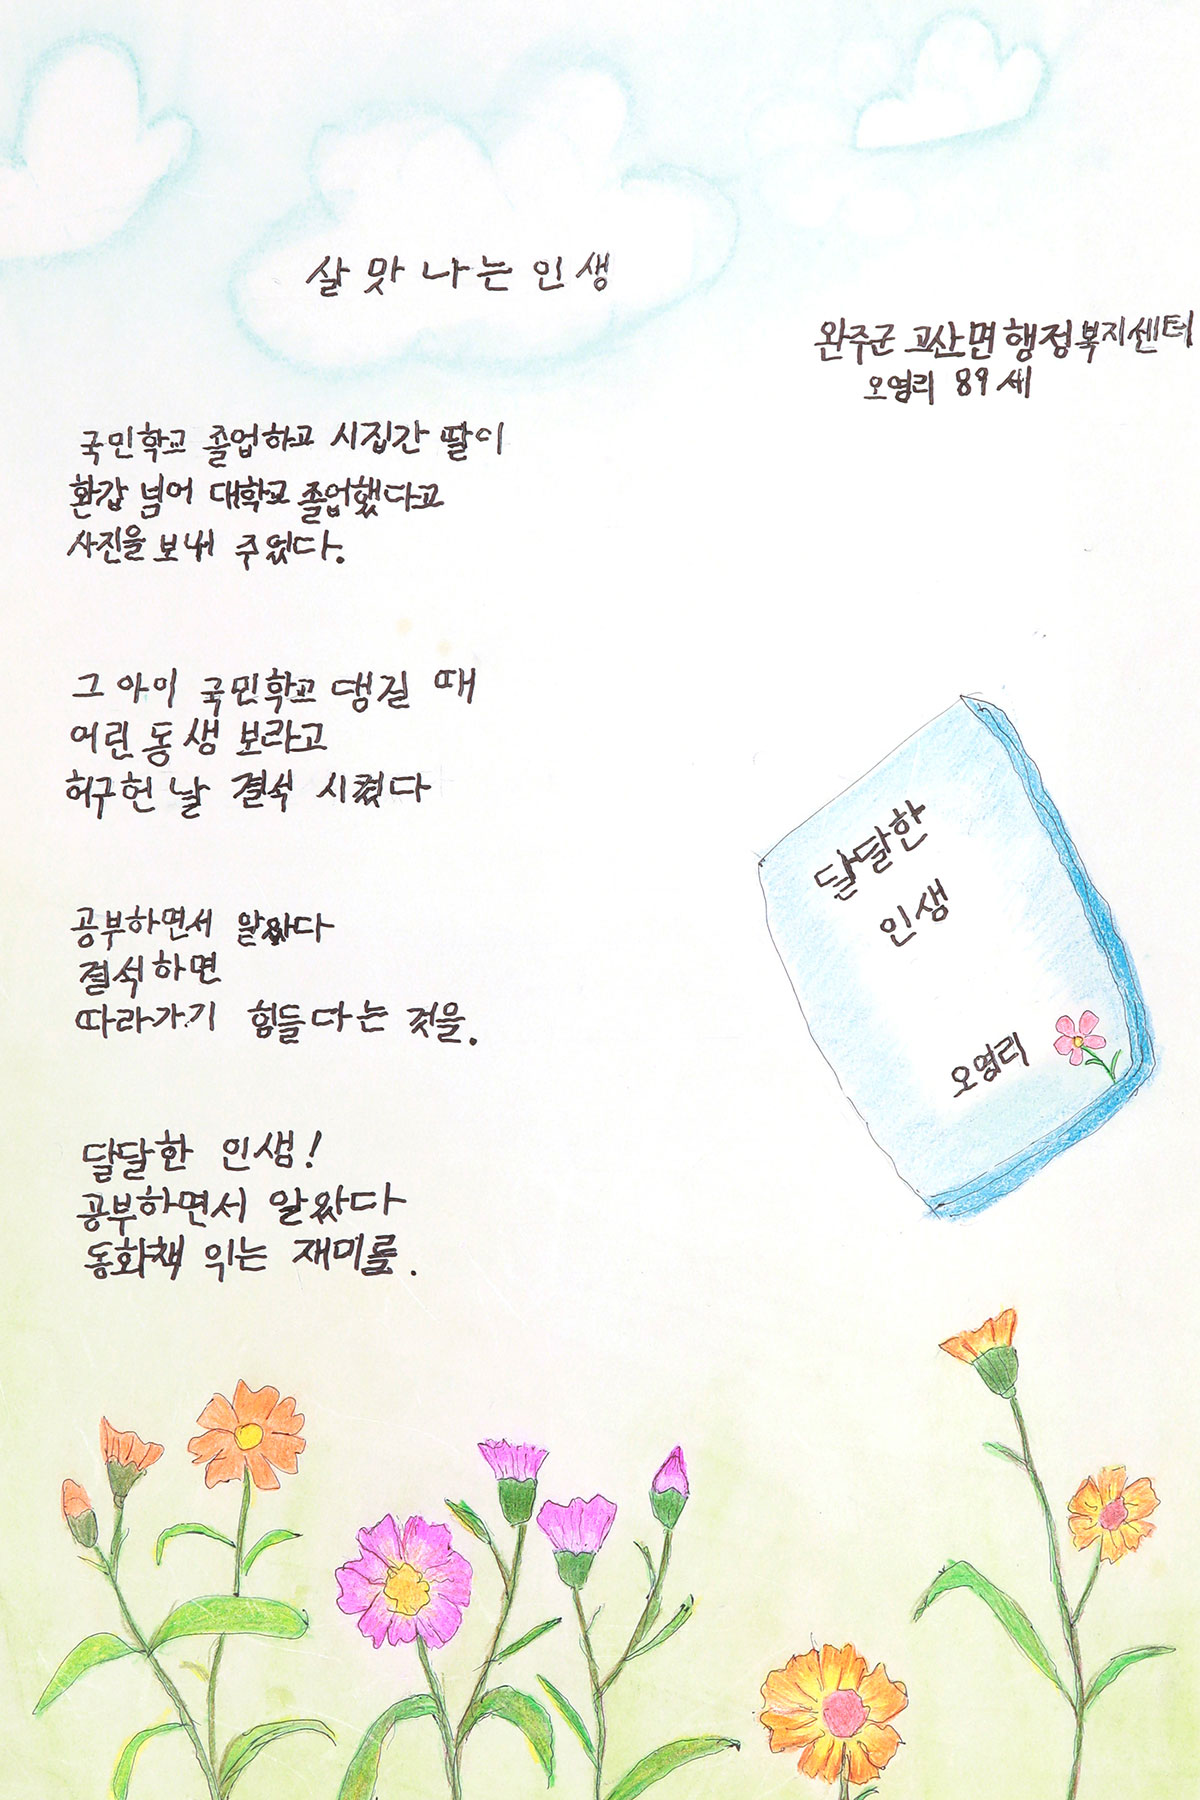 살맛나는인생
완주군 고산면행정복지센터
오영리 89세
국민학교 졸업하고 시집간 딸이
환갑 넘어 대학교 졸업했다고
사진을 보내 주었다.
그 아이 국민학교 댕길 때
어린 동생 보라고
허구헌 날 결석 시켰다
공부하면서 알았다
결석하면
따라가기 힘들다는 것을.
달달한 인생!
공부하면서 알았다
동화책 읽는 재미를.
달달한
인생
오영리